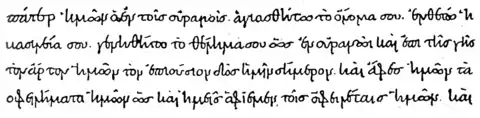 πάτερ ἡμῶν ὁ ἐν τοῖς οὐρανοῖς. ἁγιασθήτω τὸ ὄνομα σου. ἐλθέτω ἡ
βασιλεία σου. γενηθήτω τὸ θέλημά σου ὡς ἐν οὐρανῷ καὶ ἐπὶ τῆς γῆς
τὸν ἄρτον ἡμῶν τὸν ἐπιούσιον δὸς ἡμῖν σήμερον. καὶ ἄφες ἡμῖν τὰ
ὀφειλήματα ἡμῶν ὡς καὶ ἡμεῖς ἀφίεμεν τοῖς ὀφειλέταις ἡμῶν. καὶ